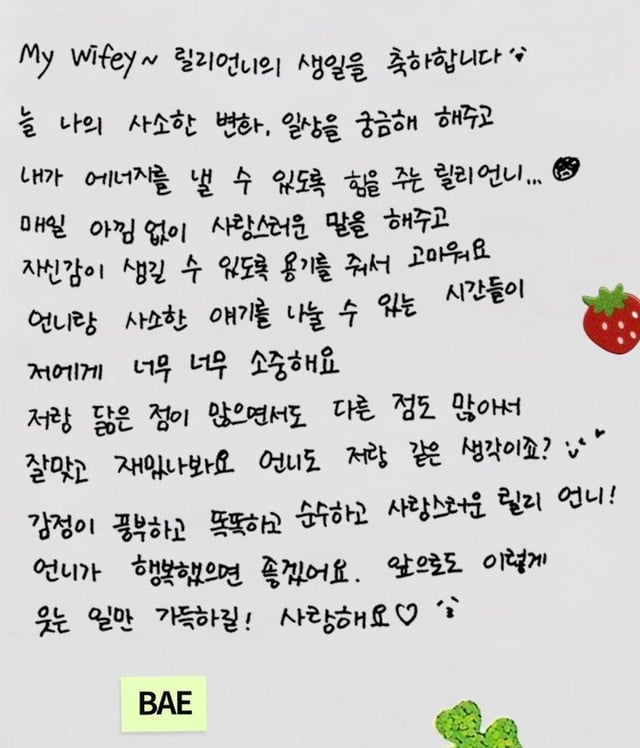 My Wifey~ 릴리언니의 생일을 축하합니다
늘 나의 사소한 변화, 일상을 궁금해 해주고
내가 에너지를 낼 수 있도록 힘을 주는 릴리언니...
매일 아낌없이 사랑스러운 말을 해주고
자신감이 생길 수 있도록 용기를 줘서 고마워요
언니랑 사소한 얘기를 나눌 수 있는 시간들이
저에게 너무 너무 소중해요
저랑 닮은 점이 많으면서도 다른 점도 많아서
잘맞고 재밌나봐요 언니도 저랑 같은 생각이죠?
감정이 풍부하고 똑똑하고 순수하고 사랑스러운 릴리 언니!
언니가 행복했으면 좋겠어요. 앞으로도 이렇게
웃는 일만 가득하길! 사랑해요♡
BAE